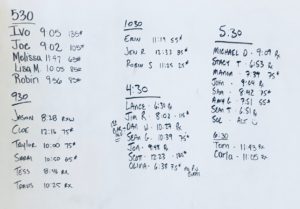 530
Ivo 9:05 135#
Joe 9:02 105#
Melissa 11:47 65#
Lisa M. 10:05 85#
Robin 9:56 85#
930
Jason 8:28 RX
Cloe 12:16 75#
Taylor 10:00 75#
Sarai 10:00 65#
Tess 8:46 RX
Tomas 10:25 RX
1030
Erin 11:19 55#
Jen R 12:33 85#
Robin S 11:25 25#
4:30
Lance 6:31 Rx
Jim R. 8:02
Dan W. 10:34 Rx
Sean G. 10:39 75#
Jon 9:48 Rx
Scot 12:23
Olivia 6:38 75#
5:30
Michael D - 9:09 Rx
Stacy T 6:53 Rx
Maria 7:39 75#
Jon 9:04
Sam 9:42 75#
Amy G 7:51 55#
Sean T. 6:51
Sol - Alt
6:30
Tom - 11:43 RX
Carla - 11:05